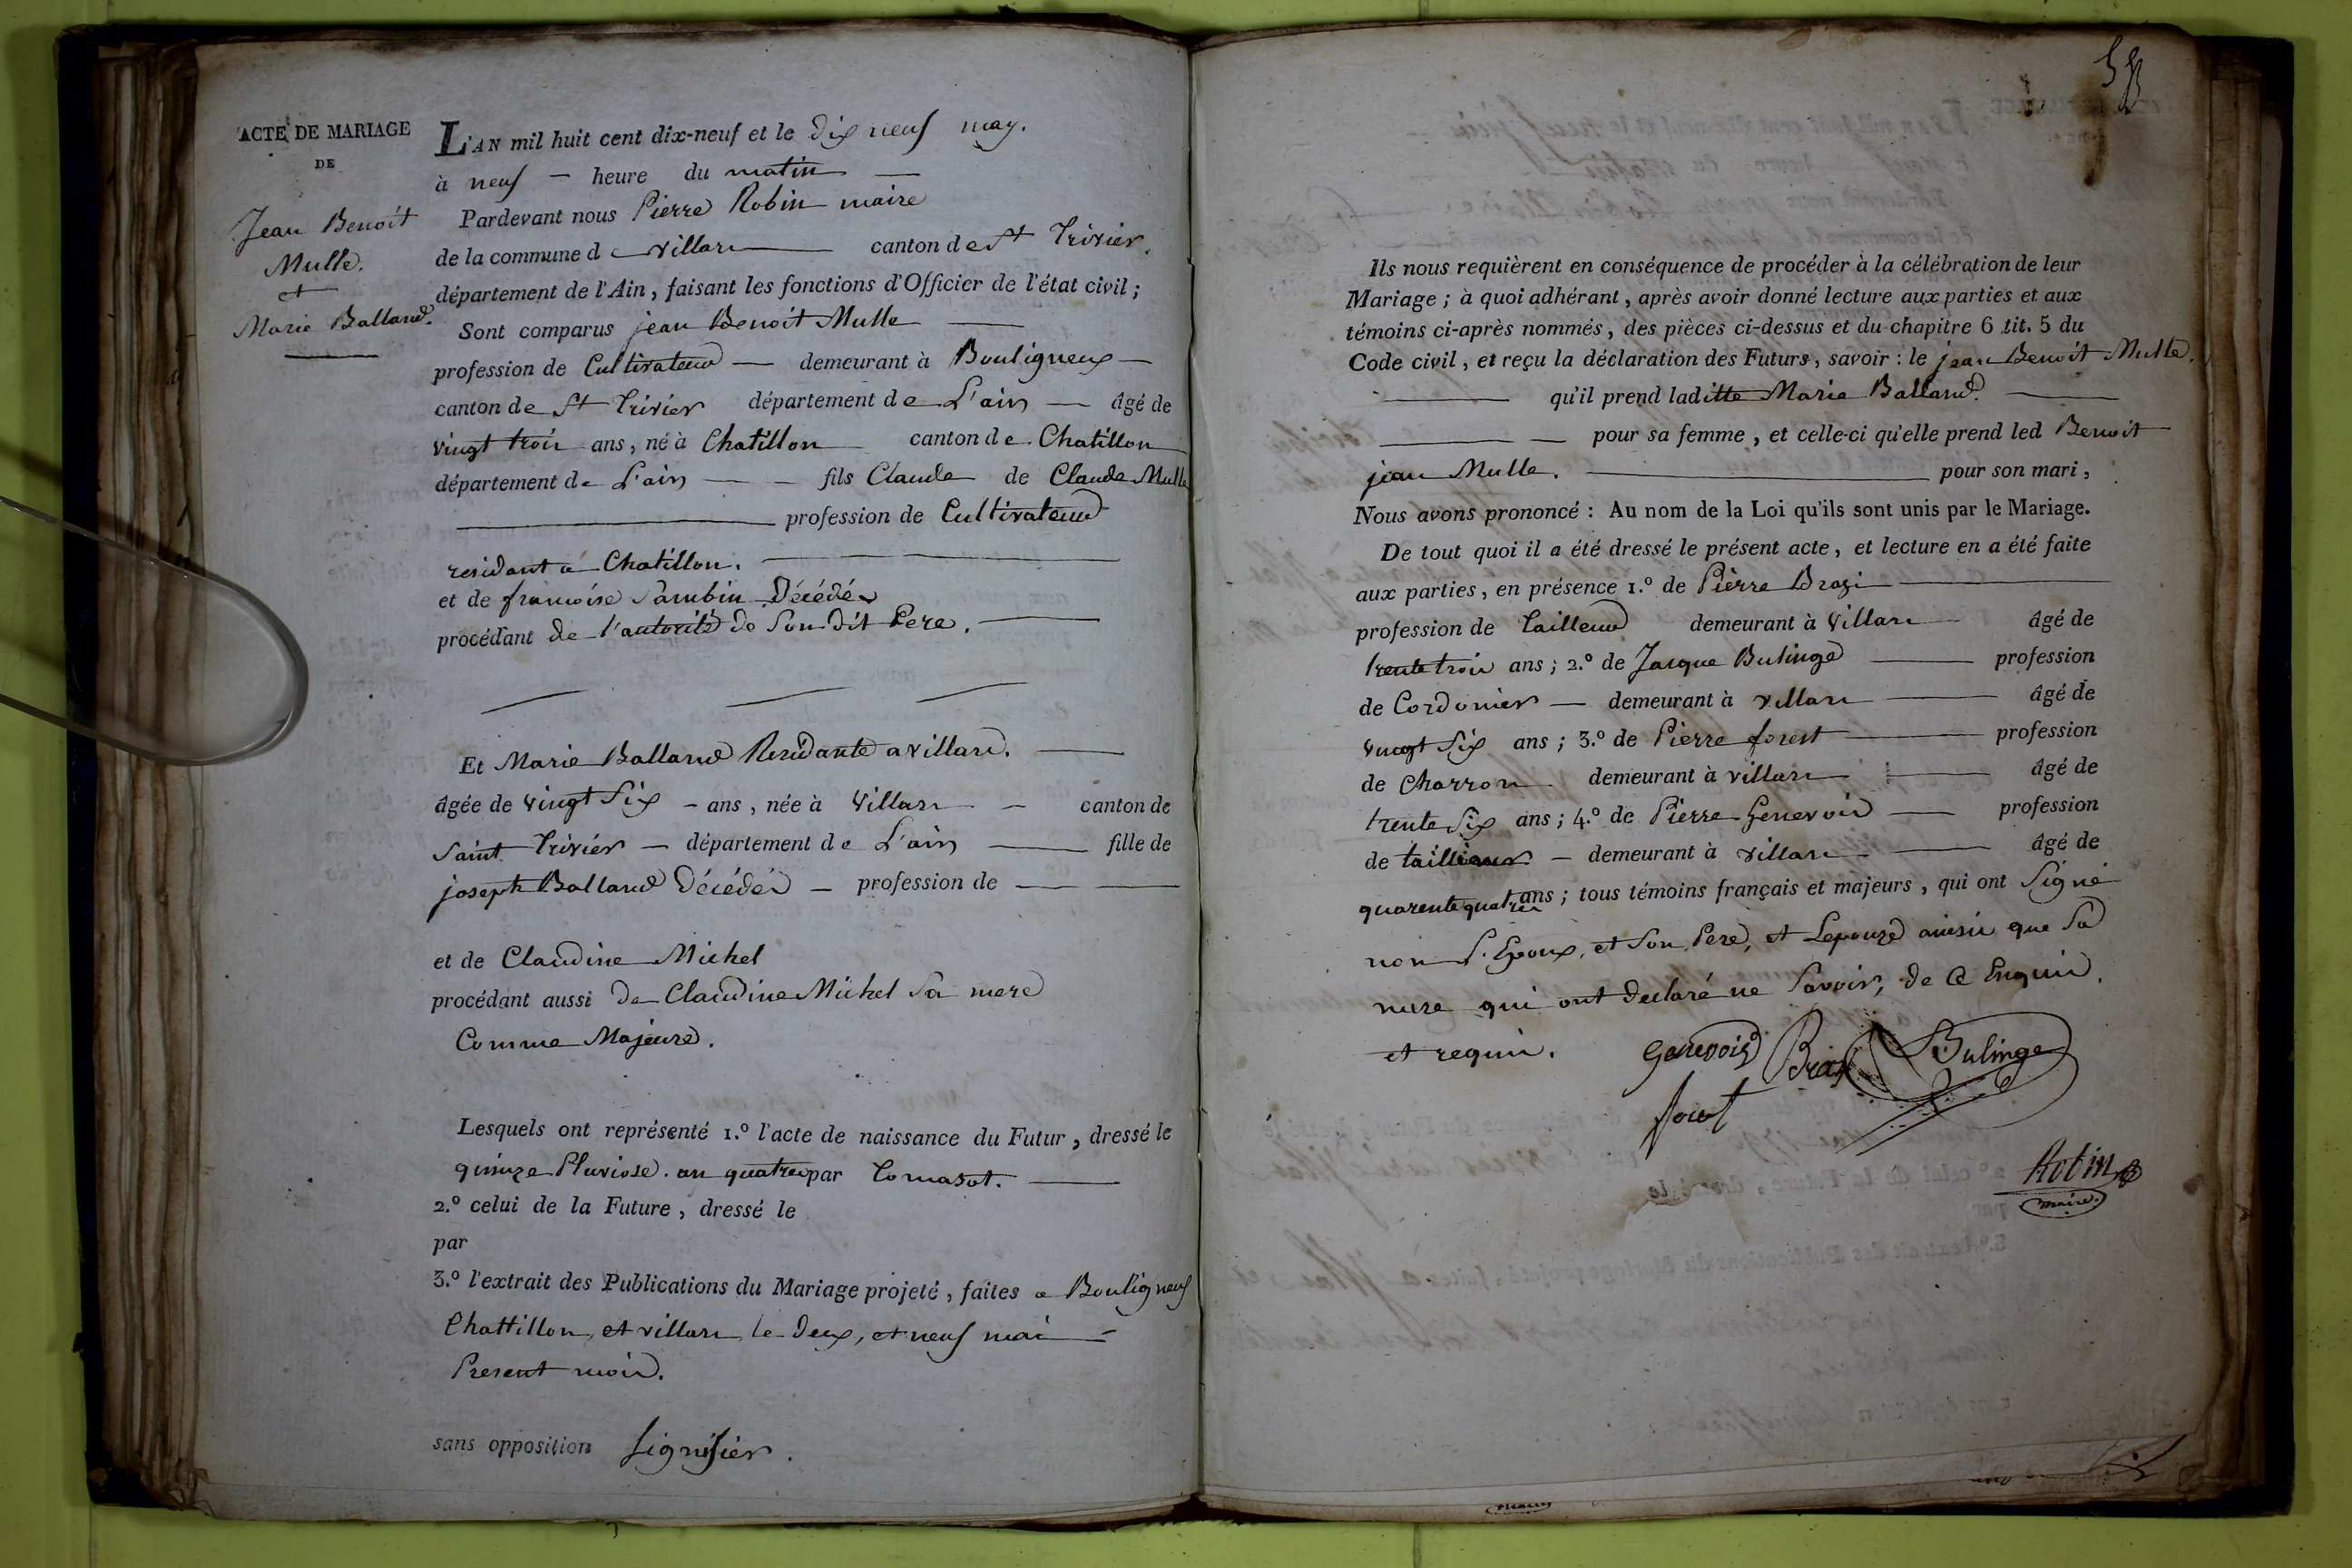 ACTE DE MARIAGE
DE
Jean Benoit
Mulle.
et
Marie Balland.
L'AN mil huit cent dix-neuf et le dix neuf may.
à neuf — heure du matin —
Pardevant nous Pierre Robin maire
de la commune de villars canton de St Trivier.
département de l'Ain, faisant les fonctions d'Officier de l'état civil;
Sont comparus jean Benoit Mulle
profession de Cultivateur — demeurant à Bouligneux —
canton de St Trivier département de L'ain — âgé de
vingt trois ans, né à Chatillon canton de Chatillon
département de L'ain — — fils Claude de Claude Mulle
profession de Cultivateur
residant a Chatillon.
et de francoise Sambin Décédée
procédant de l'autorité de Son dit Pere.
Et Marie Balland Residante a villars.
âgée de vingt Six — ans, née à Villars — canton de
Saint Trivier — département de L'ain — fille de
joseph Balland Décédée — profession de —
et de Claudine Michel
procédant aussi de Claudine Michel Sa mere
Comme Majeure.
Lesquels ont représenté 1.º l'acte de naissance du Futur, dressé le
quinze Pluviose. an quatre par Comasot.
2.º celui de la Future, dressé le
par
3.º l'extrait des Publications du Mariage projeté, faites a Bouligneux
Chattillon, et villars, le deux, et neuf mai —
Present mois.
sans opposition signifier.
Ils nous requièrent en conséquence de procéder à la célébration de leur
Mariage; à quoi adhérant, après avoir donné lecture aux parties et aux
témoins ci-après nommés, des pièces ci-dessus et du chapitre 6 tit. 5 du
Code civil, et reçu la déclaration des Futurs, savoir: le jean Benoit Mulle.
qu'il prend laditte Marie Balland.
pour sa femme, et celle-ci qu'elle prend led Benoit
jean Mulle. pour son mari,
Nous avons prononcé: Au nom de la Loi qu'ils sont unis par le Mariage.
De tout quoi il a été dressé le présent acte, et lecture en a été faite
aux parties, en présence 1.º de Pierre Brazi
profession de Tailleur demeurant à Villars âgé de
trente trois ans; 2.º de Jacque Bulinge profession
de Cordonier — demeurant à villars âgé de
vingt Six ans; 3.º de Pierre forest profession
de Charron demeurant à villars âgé de
trente Six ans; 4.º de Pierre Genevois profession
de tailleur — demeurant à villars âgé de
quarente quatre ans; tous témoins français et majeurs, qui ont Signé
non L'Epoux, et Son Pere, et Lepouze ainsi que Sa
mere qui ont declaré ne Savoir, de ce Enquis.
et requis. Genevois Braz Bulinge
forest
Robin
maire.